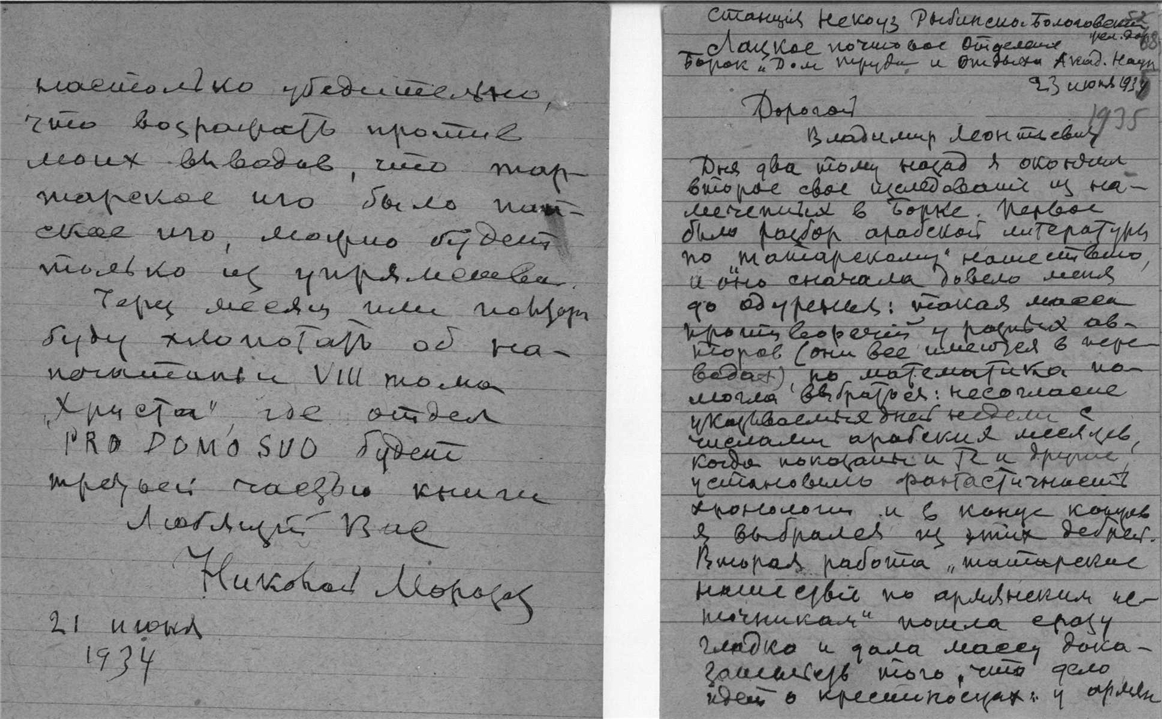 настолько убедительно,
что возражать против
моих выводов, что тар-
тарское иго было пап-
ское иго, можно будет
только из упрямства.
Через месяц или полтора
буду хлопотать об на-
печатаньи VIII тома
„Христа", где отдел
PRO DOMO SUO будет
третьей частью книги
Любящий Вас
Николай Морозов
21 июня
1934
Станція Некоуз Рыбинско-Бологовской
жел. дор.
Лацкое почтовое отделение
Борок „Дом труда и отдыха Акад. Наук
23 июня 193
1935
Дорогой
Владимир Леонтьевич
Дня два тому назад я окончил
второе свое иследование из на-
меченных в Борке. Первое
было разбор арабской литературы
по „татарскому" нашествию,
и оно сначала довело меня
до одурения: такая масса
противоречий у разных ав-
торов (они все имеются в пере-
водах), но математика по-
могла выбраться: несогласие
указываемых дней недели с
числами арабских месяцев,
когда показаны и те и другие,
установило фантастичность
хронологии и в конце концов
я выбрался из этих дебрей.
Вторая работа „татарские
нашествия по армянским ис-
точникам" пошла сразу
гладко и дала массу дока-
зательств того, что дело
идет о крестоносцах: у армян